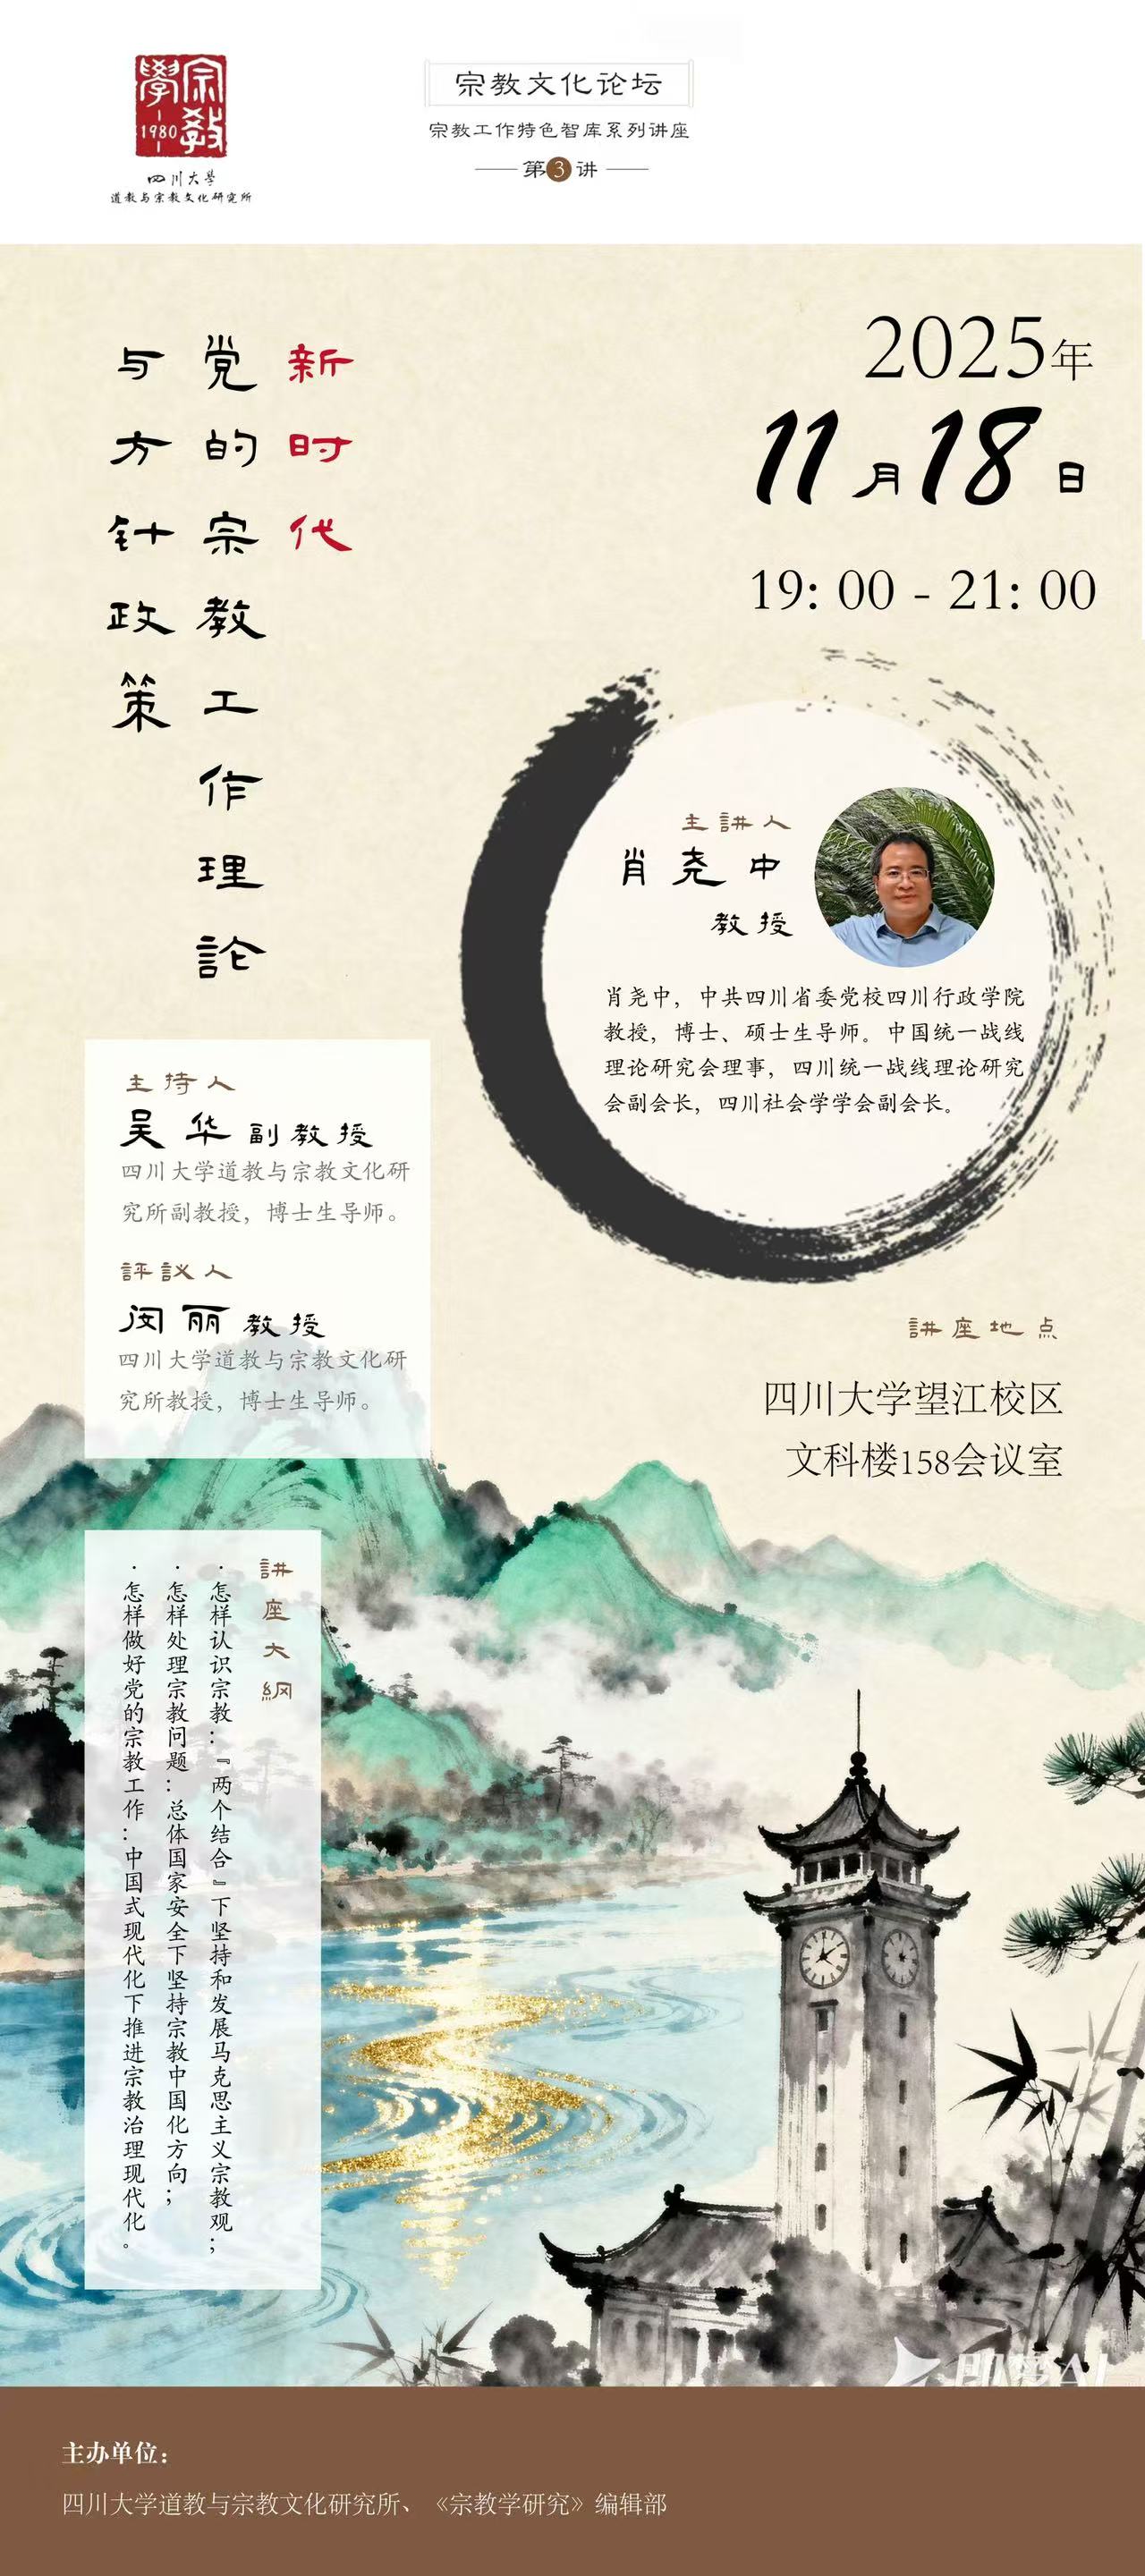 宗教
學
1980
四川大学
道教与宗教文化研究所
宗教文化论坛
宗教工作特色智库系列讲座
第3讲
新时代
党的宗教工作理論
与方针政策
2025年
11月18日
19: 00 - 21: 00
主講人
肖尧中
教授
肖尧中，中共四川省委党校四川行政学院
教授，博士、硕士生导师。中国统一战线
理论研究会理事，四川统一战线理论研究
会副会长，四川社会学学会副会长。
主持人
吴华副教授
四川大学道教与宗教文化研
究所副教授，博士生导师。
評議人
闵丽教授
四川大学道教与宗教文化研
究所教授，博士生导师。
講座地点
四川大学望江校区
文科楼158会议室
講座大綱
·怎样认识宗教：『两个结合』下坚持和发展马克思主义宗教观；
·怎样处理宗教问题：总体国家安全下坚持宗教中国化方向；
·怎样做好党的宗教工作：中国式现代化下推进宗教治理现代化。
即梦AI
主办单位：
四川大学道教与宗教文化研究所、《宗教学研究》编辑部